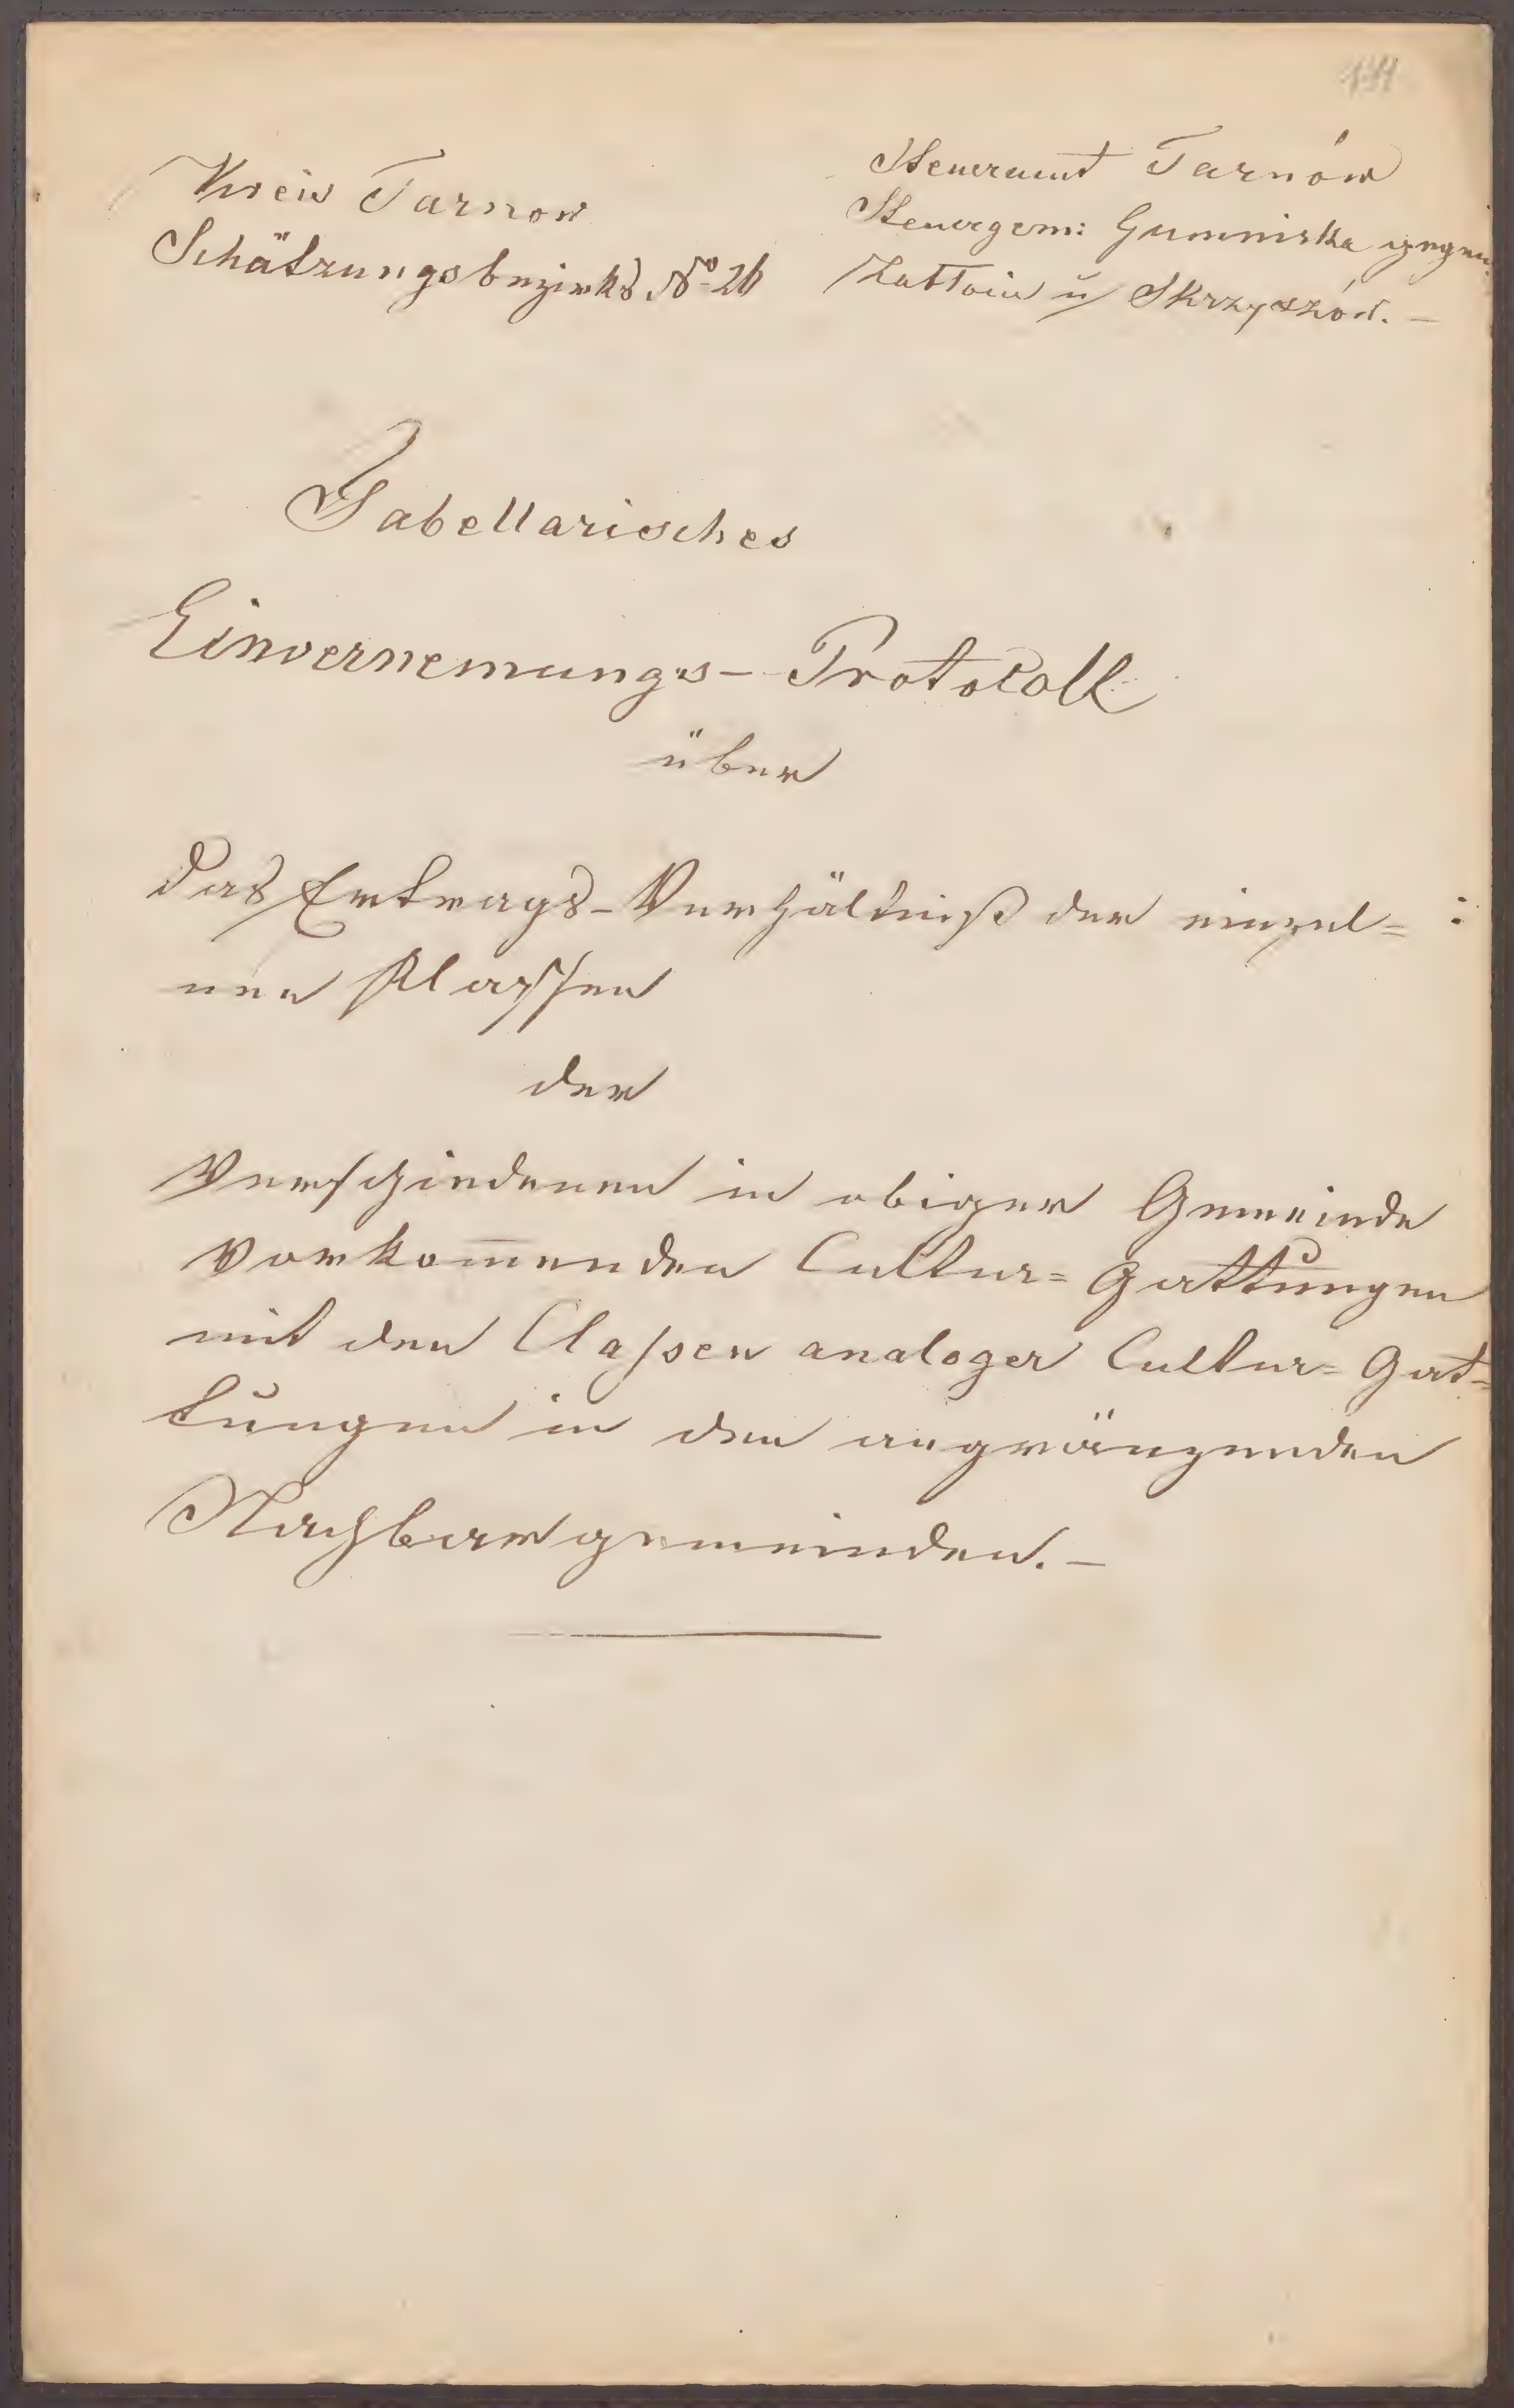 Kreis Tarnow
Schätzungsbezirks No 26
Steueramt Tarnów
Steuergem: Gumniska gegen
u Skrzyszów. –
Tabellarisches
Einvernemungs – Protokoll
über
das Ertrags – Verhältniß der einzel=
nen Klassen
der
verschiedenen in obiger Gemeinde
vorkom̅enden Cultur= Gattungen
mit den Classen analoger Cultur= Gat=
tungen in den angränzenden
Nachbargemeinden. –